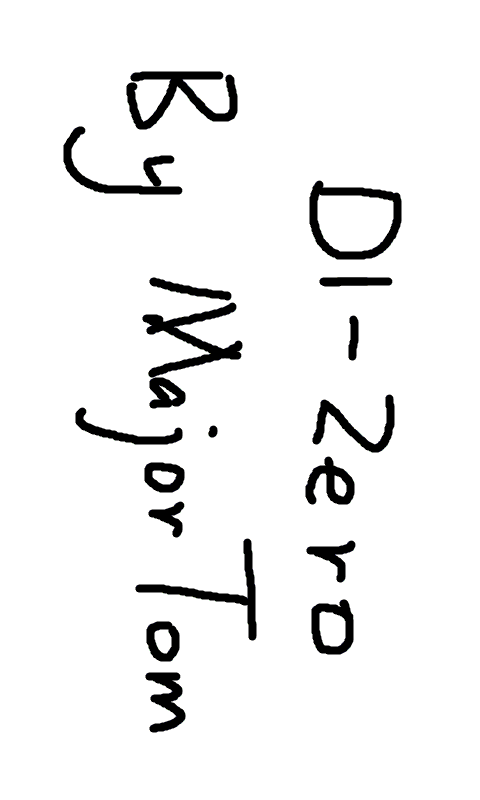 D1-Zero
By Major Tom